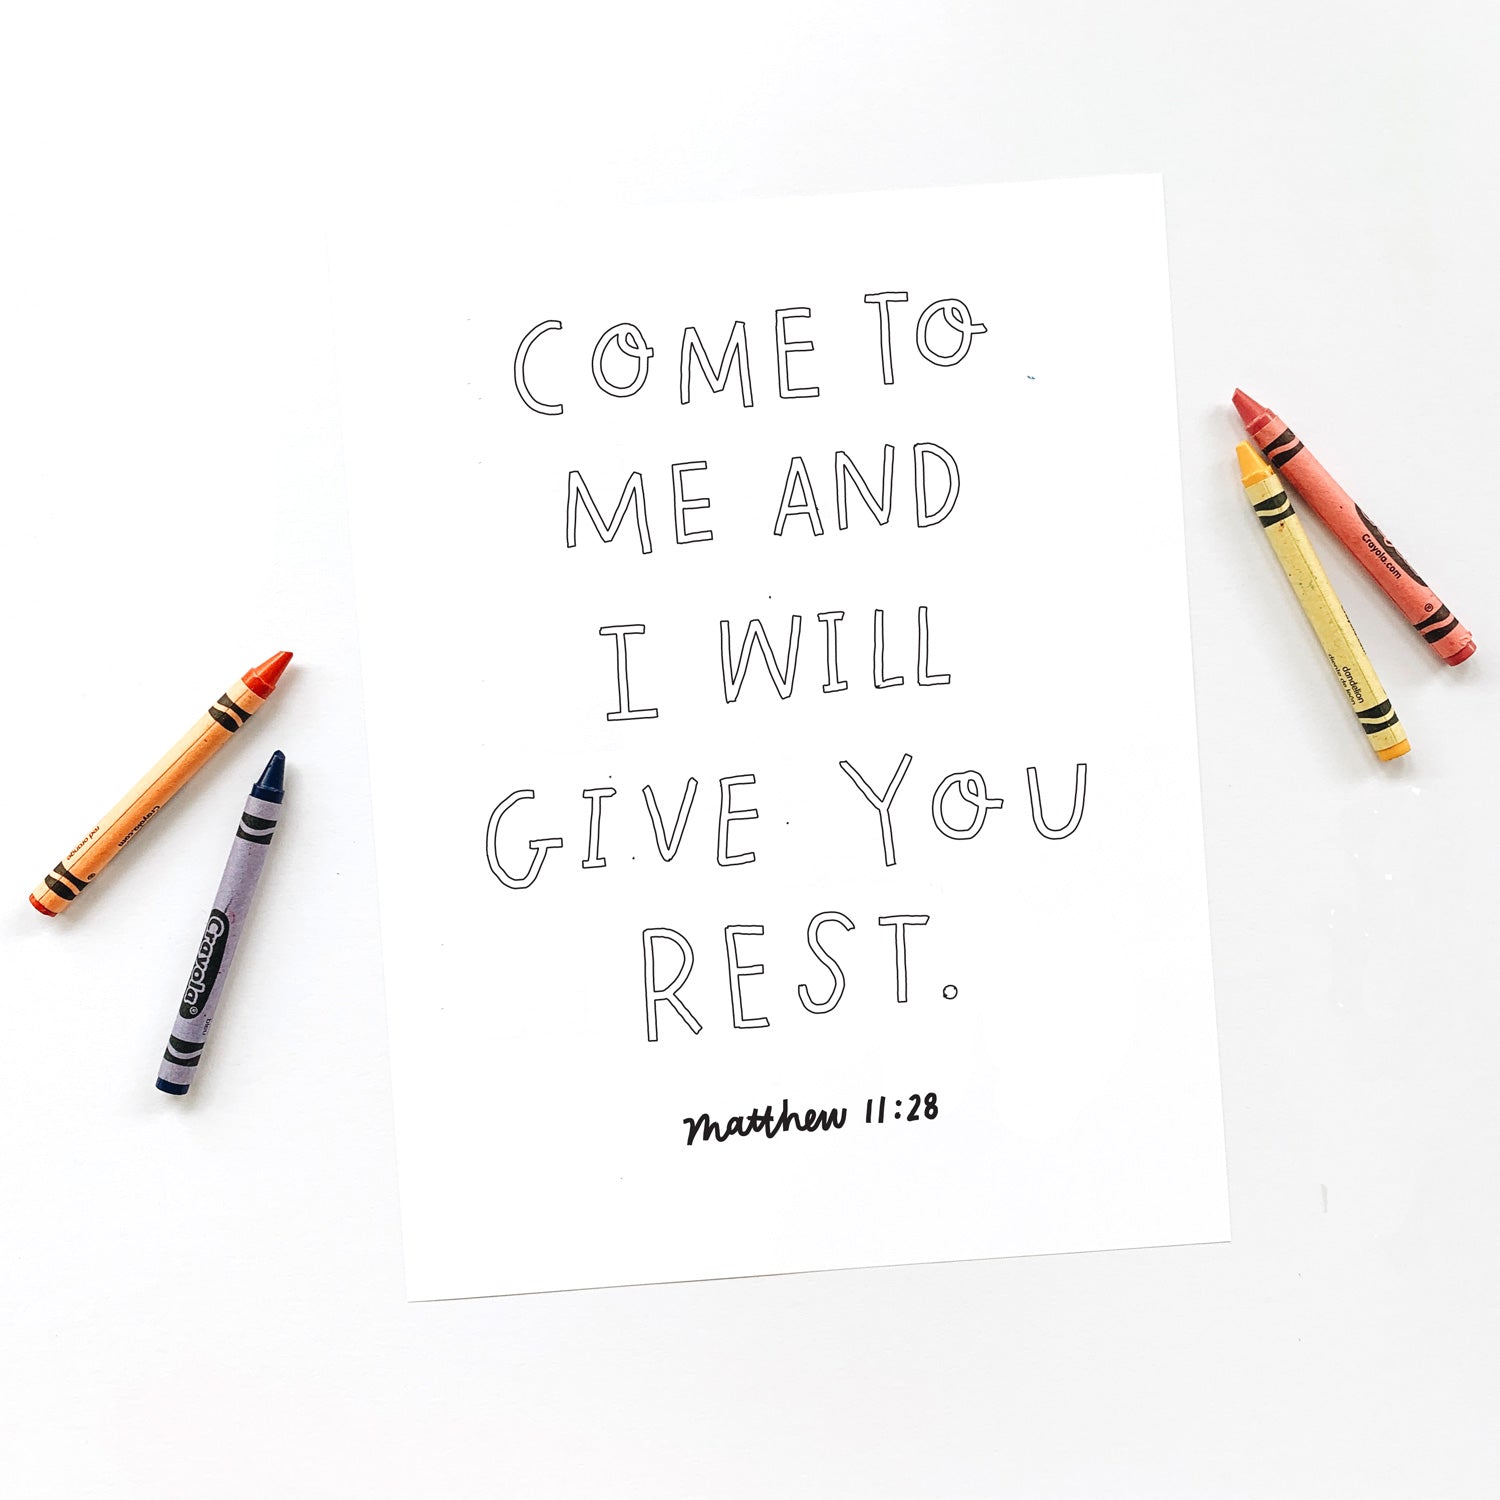 COME TO
ME AND
I WILL
GIVE YOU
REST.
Matthew 11:28
Crayola.com
dandelion
red orange
Crayola.com
Crayola